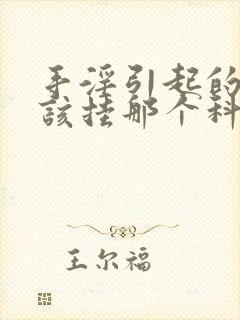 手淫引起的
該挂那个科
王尔福